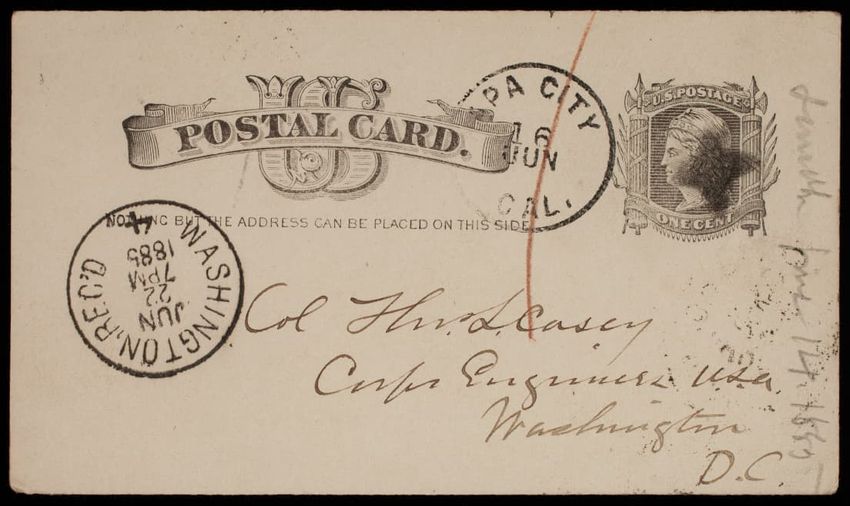 US
POSTAL CARD.
NOTHING BUT THE ADDRESS CAN BE PLACED ON THIS SIDE
PA CITY
16
JUN
CAL.
U.S. POSTAGE
ONE CENT
WASHINGTON, REC'D
JUN
22
7 PM
1885
4
Col Thos. L. Casey
Corps Engineers U.S.A.
Washington
D.C.
June 14. 1885